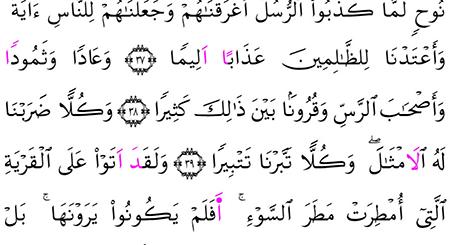 نُوحٍ لَّمَّا كَذَّبُوا۟ اُ۬لرُّسُلَ أَغْرَقْنَٰهُمْ وَجَعَلْنَٰهُمْ لِلنَّاسِ ءَايَةً
وَأَعْتَدْنَا لِلظَّٰلِمِينَ عَذَابًا اَلِيمًا ۝٣٧ وَعَادًا وَثَمُودًا
وَأَصْحَٰبَ اَ۬لرَّسِّ وَقُرُونًۢا بَيْنَ ذَٰلِكَ كَثِيرًا ۝٣٨ وَكُلًّا ضَرَبْنَا
لَهُ اُ۬لَامْثَٰلَۖ وَكُلًّا تَبَّرْنَا تَتْبِيرًا ۝٣٩ وَلَقَدَ اَتَوْا۟ عَلَى اَ۬لْقَرْيَةِ
اِ۬لَّتِىٓ أُمْطِرَتْ مَطَرَ اَ۬لسَّوْءِۚ أَفَلَمْ يَكُونُوا۟ يَرَوْنَهَاۚ بَلْ